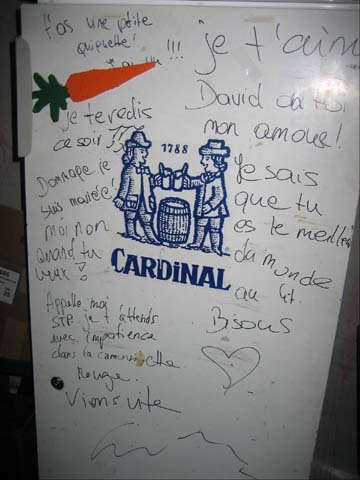 T'as une ptite
quiquette!
j'ai vu !!!
je t'aim
David
mon amour!
je te redis
ce soir
1788
Dommage je
suis mariée!
moi non
quand tu
veux!
CARDINAL
Je sais
que tu
es le meilleur
du monde
au lit.
Bisous
Appelle moi
STP. je t'attends
avec impatience
dans la camionnette
Rouge.
Viens vite